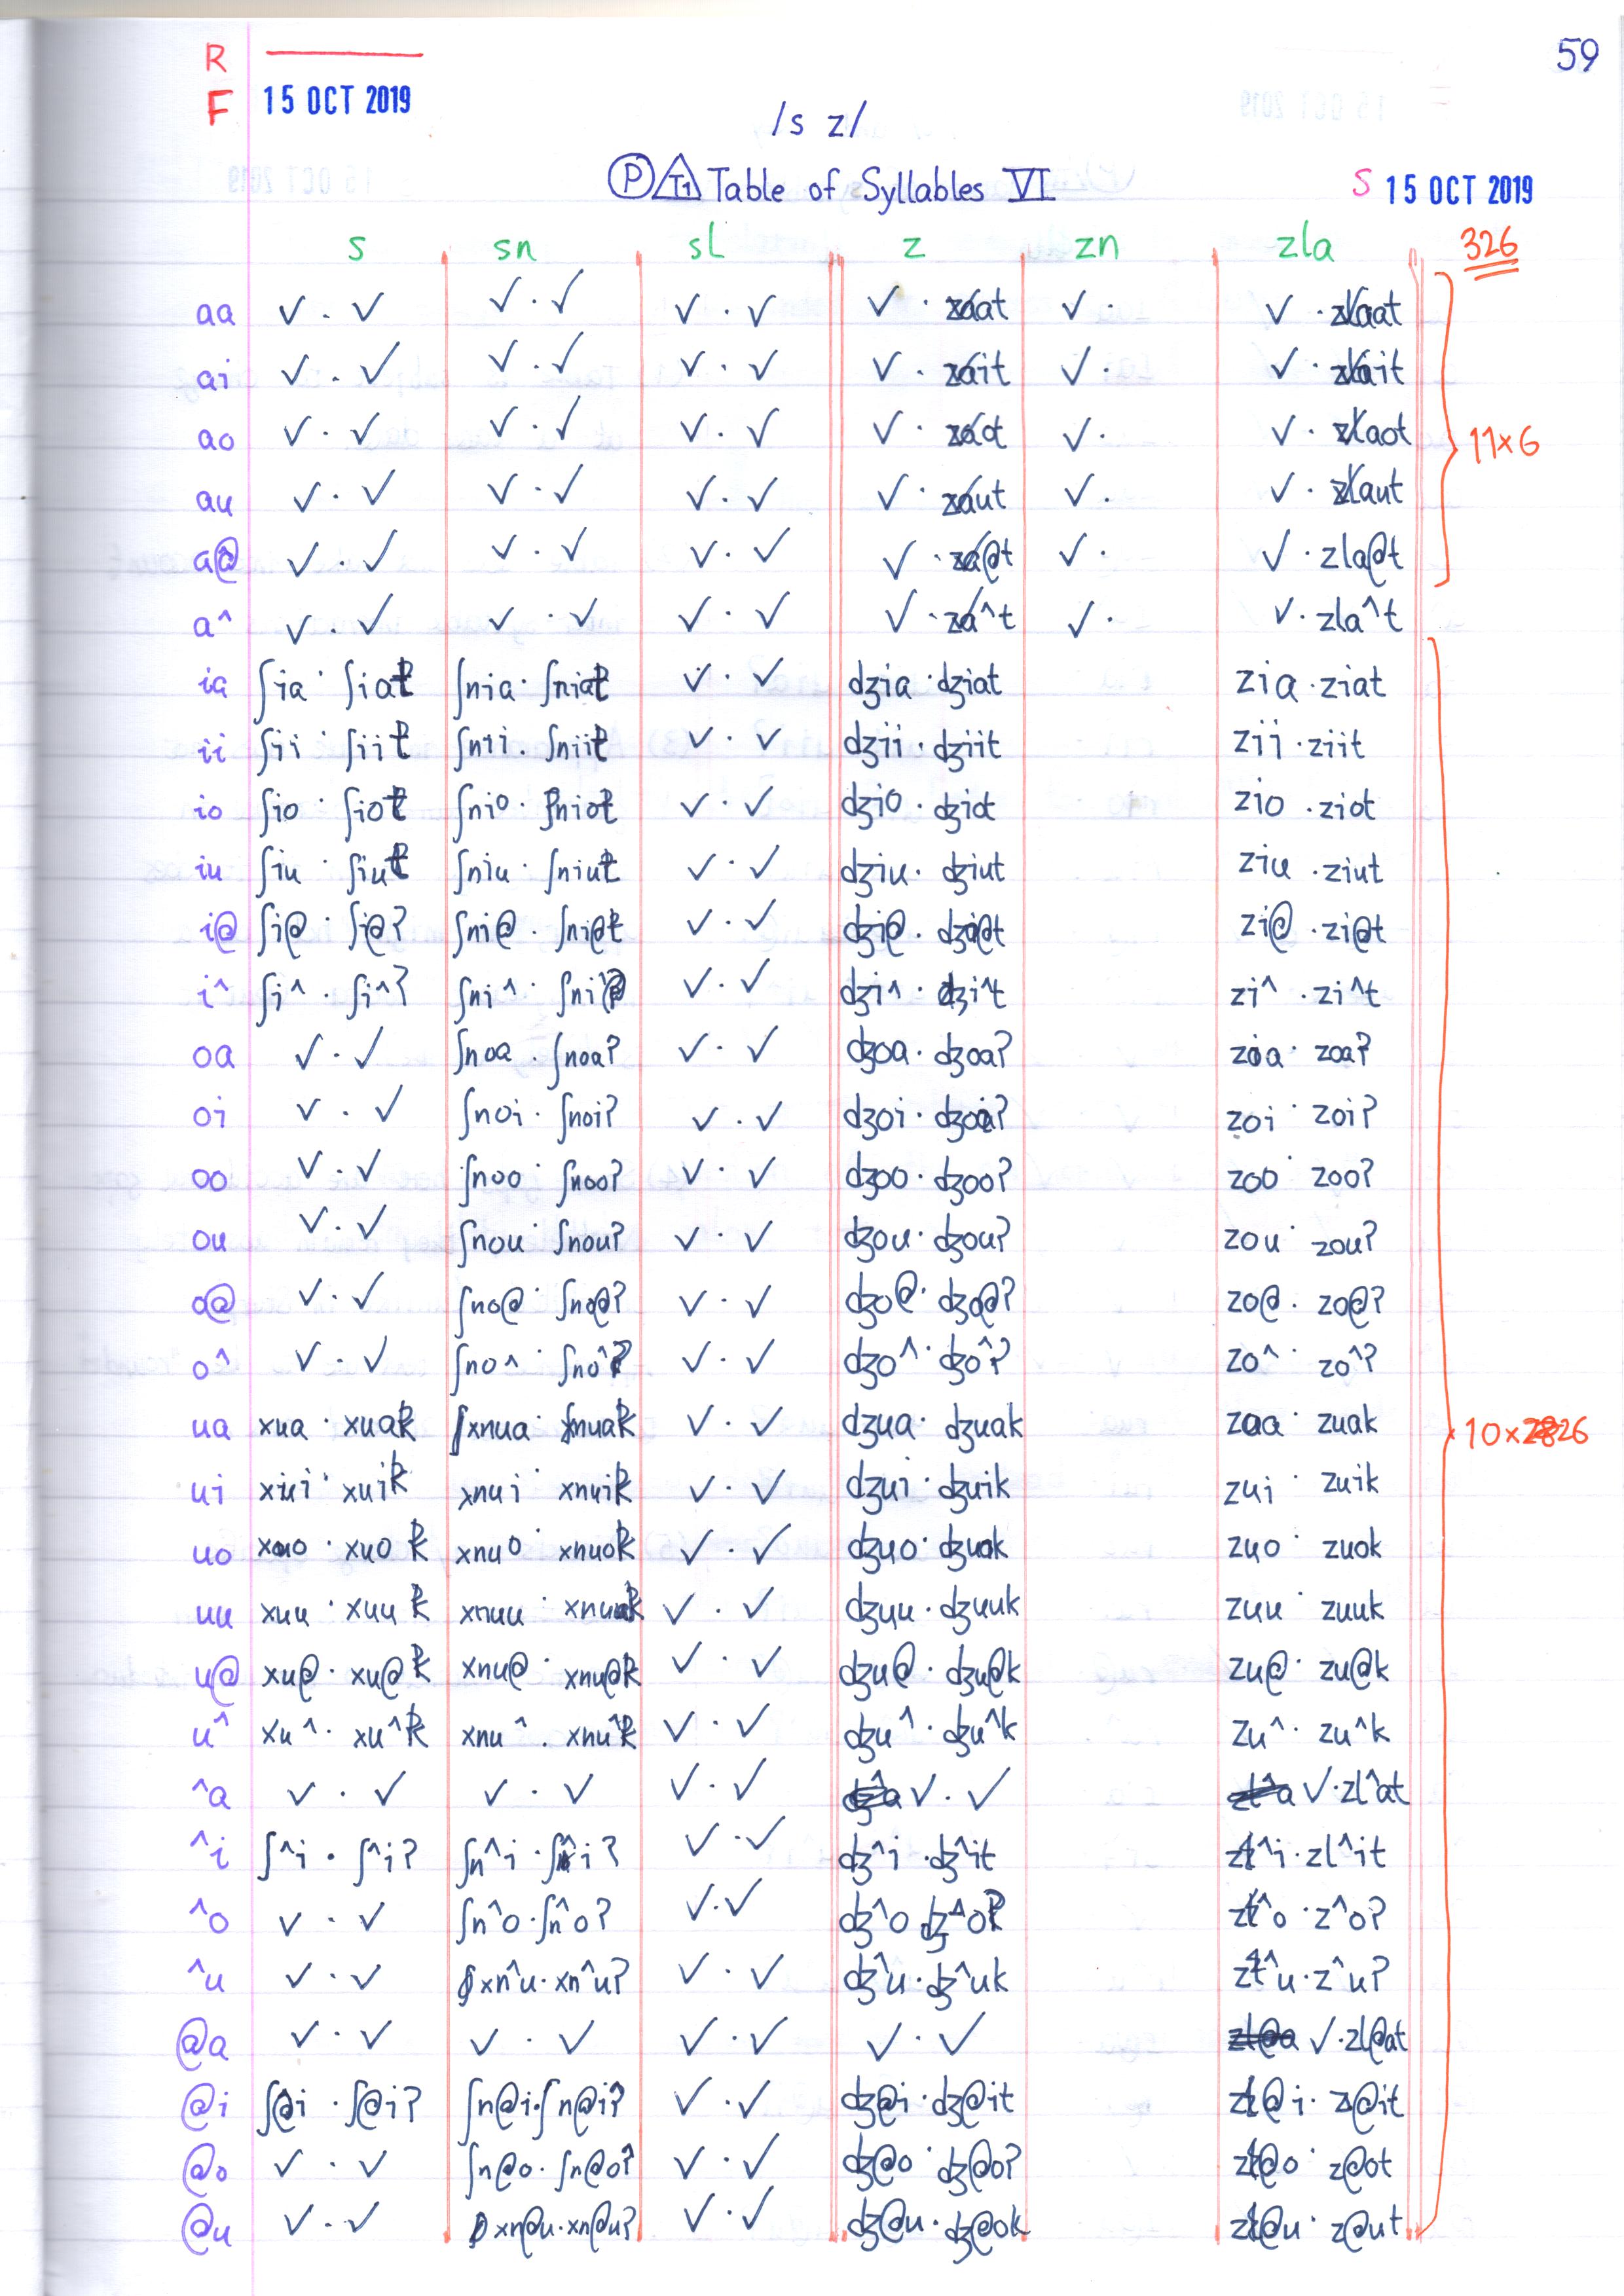 59
R
F 15 OCT 2019
/s z/
P T1 Table of Syllables VI S 15 OCT 2019
s sn sl z zn zla 326
aa ✓ · ✓ ✓ · ✓ ✓ · ✓ ✓ · zaat ✓ · ✓ · zlaat
ai ✓ · ✓ ✓ · ✓ ✓ · ✓ ✓ · zait ✓ · ✓ · zlait
ao ✓ · ✓ ✓ · ✓ ✓ · ✓ ✓ · zaot ✓ · ✓ · zlaot 11×6
au ✓ · ✓ ✓ · ✓ ✓ · ✓ ✓ · zaut ✓ · ✓ · zlaut
a@ ✓ · ✓ ✓ · ✓ ✓ · ✓ ✓ · za@t ✓ · ✓ · zla@t
a^ ✓ · ✓ ✓ · ✓ ✓ · ✓ ✓ · za^t ✓ · ✓ · zla^t
ia ʃia · ʃiat ʃnia · ʃniat ✓ · ✓ dʒia · dʒiat zia · ziat
ii ʃii · ʃiit ʃnii · ʃniit ✓ · ✓ dʒii · dʒiit zii · ziit
io ʃio · ʃiot ʃnio · ʃniot ✓ · ✓ dʒio · dʒiot zio · ziot
iu ʃiu · ʃiut ʃniu · ʃniut ✓ · ✓ dʒiu · dʒiut ziu · ziut
i@ ʃi@ · ʃi@? ʃni@ · ʃni@t ✓ · ✓ dʒi@ · dʒi@t zi@ · zi@t
i^ ʃi^ · ʃi^? ʃni^ · ✓ · ✓ dʒi^ · dʒi^t zi^ · zi^t
oa ✓ · ✓ ʃnoa · ʃnoa? ✓ · ✓ dʒoa · dʒoa? zoa · zoa?
oi ✓ · ✓ ʃnoi · ʃnoi? ✓ · ✓ dʒoi · dʒoi? zoi · zoi?
oo ✓ · ✓ ʃnoo · ʃnoo? ✓ · ✓ dʒoo · dʒoo? zoo · zoo?
ou ✓ · ✓ ʃnou · ʃnou? ✓ · ✓ dʒou · dʒou? zou · zou?
o@ ✓ · ✓ ʃno@ · ʃno@? ✓ · ✓ dʒo@ · dʒo@? zo@ · zo@?
o^ ✓ · ✓ ʃno^ · ʃno^? ✓ · ✓ dʒo^ · dʒo^? zo^ · zo^?
ua xua · xuak xnua · xnuak ✓ · ✓ dʒua · dʒuak zua · zuak 10×26
ui xui · xuik xnui · xnuik ✓ · ✓ dʒui · dʒuik zui · zuik
uo xuo · xuok xnuo · xnuok ✓ · ✓ dʒuo · dʒuok zuo · zuok
uu xuu · xuuk xnuu · xnuuk ✓ · ✓ dʒuu · dʒuuk zuu · zuuk
u@ xu@ · xu@k xnu@ · xnu@k ✓ · ✓ dʒu@ · dʒu@k zu@ · zu@k
u^ xu^ · xu^k xnu^ · xnu^k ✓ · ✓ dʒu^ · dʒu^k zu^ · zu^k
^a ✓ · ✓ ✓ · ✓ ✓ · ✓ ✓ · ✓ ✓ · zl^at
^i ʃ^i · ʃ^i? ʃn^i · ʃn^i? ✓ · ✓ dʒ^i · dʒ^it z^i · zl^it
^o ✓ · ✓ ʃn^o · ʃn^o? ✓ · ✓ dʒ^o · z^o · z^o?
^u ✓ · ✓ xn^u · xn^u? ✓ · ✓ dʒ^u · dʒ^uk z^u · z^u?
@a ✓ · ✓ ✓ · ✓ ✓ · ✓ ✓ · ✓ ✓ · zl@at
@i ʃ@i · ʃ@i? ʃn@i · ʃn@i? ✓ · ✓ dʒ@i · dʒ@it z@i · z@it
@o ✓ · ✓ ʃn@o · ʃn@o? ✓ · ✓ dʒ@o · dʒ@o? z@o · z@ot
@u ✓ · ✓ xn@u · xn@u? ✓ · ✓ dʒ@u · dʒ@ok z@u · z@ut